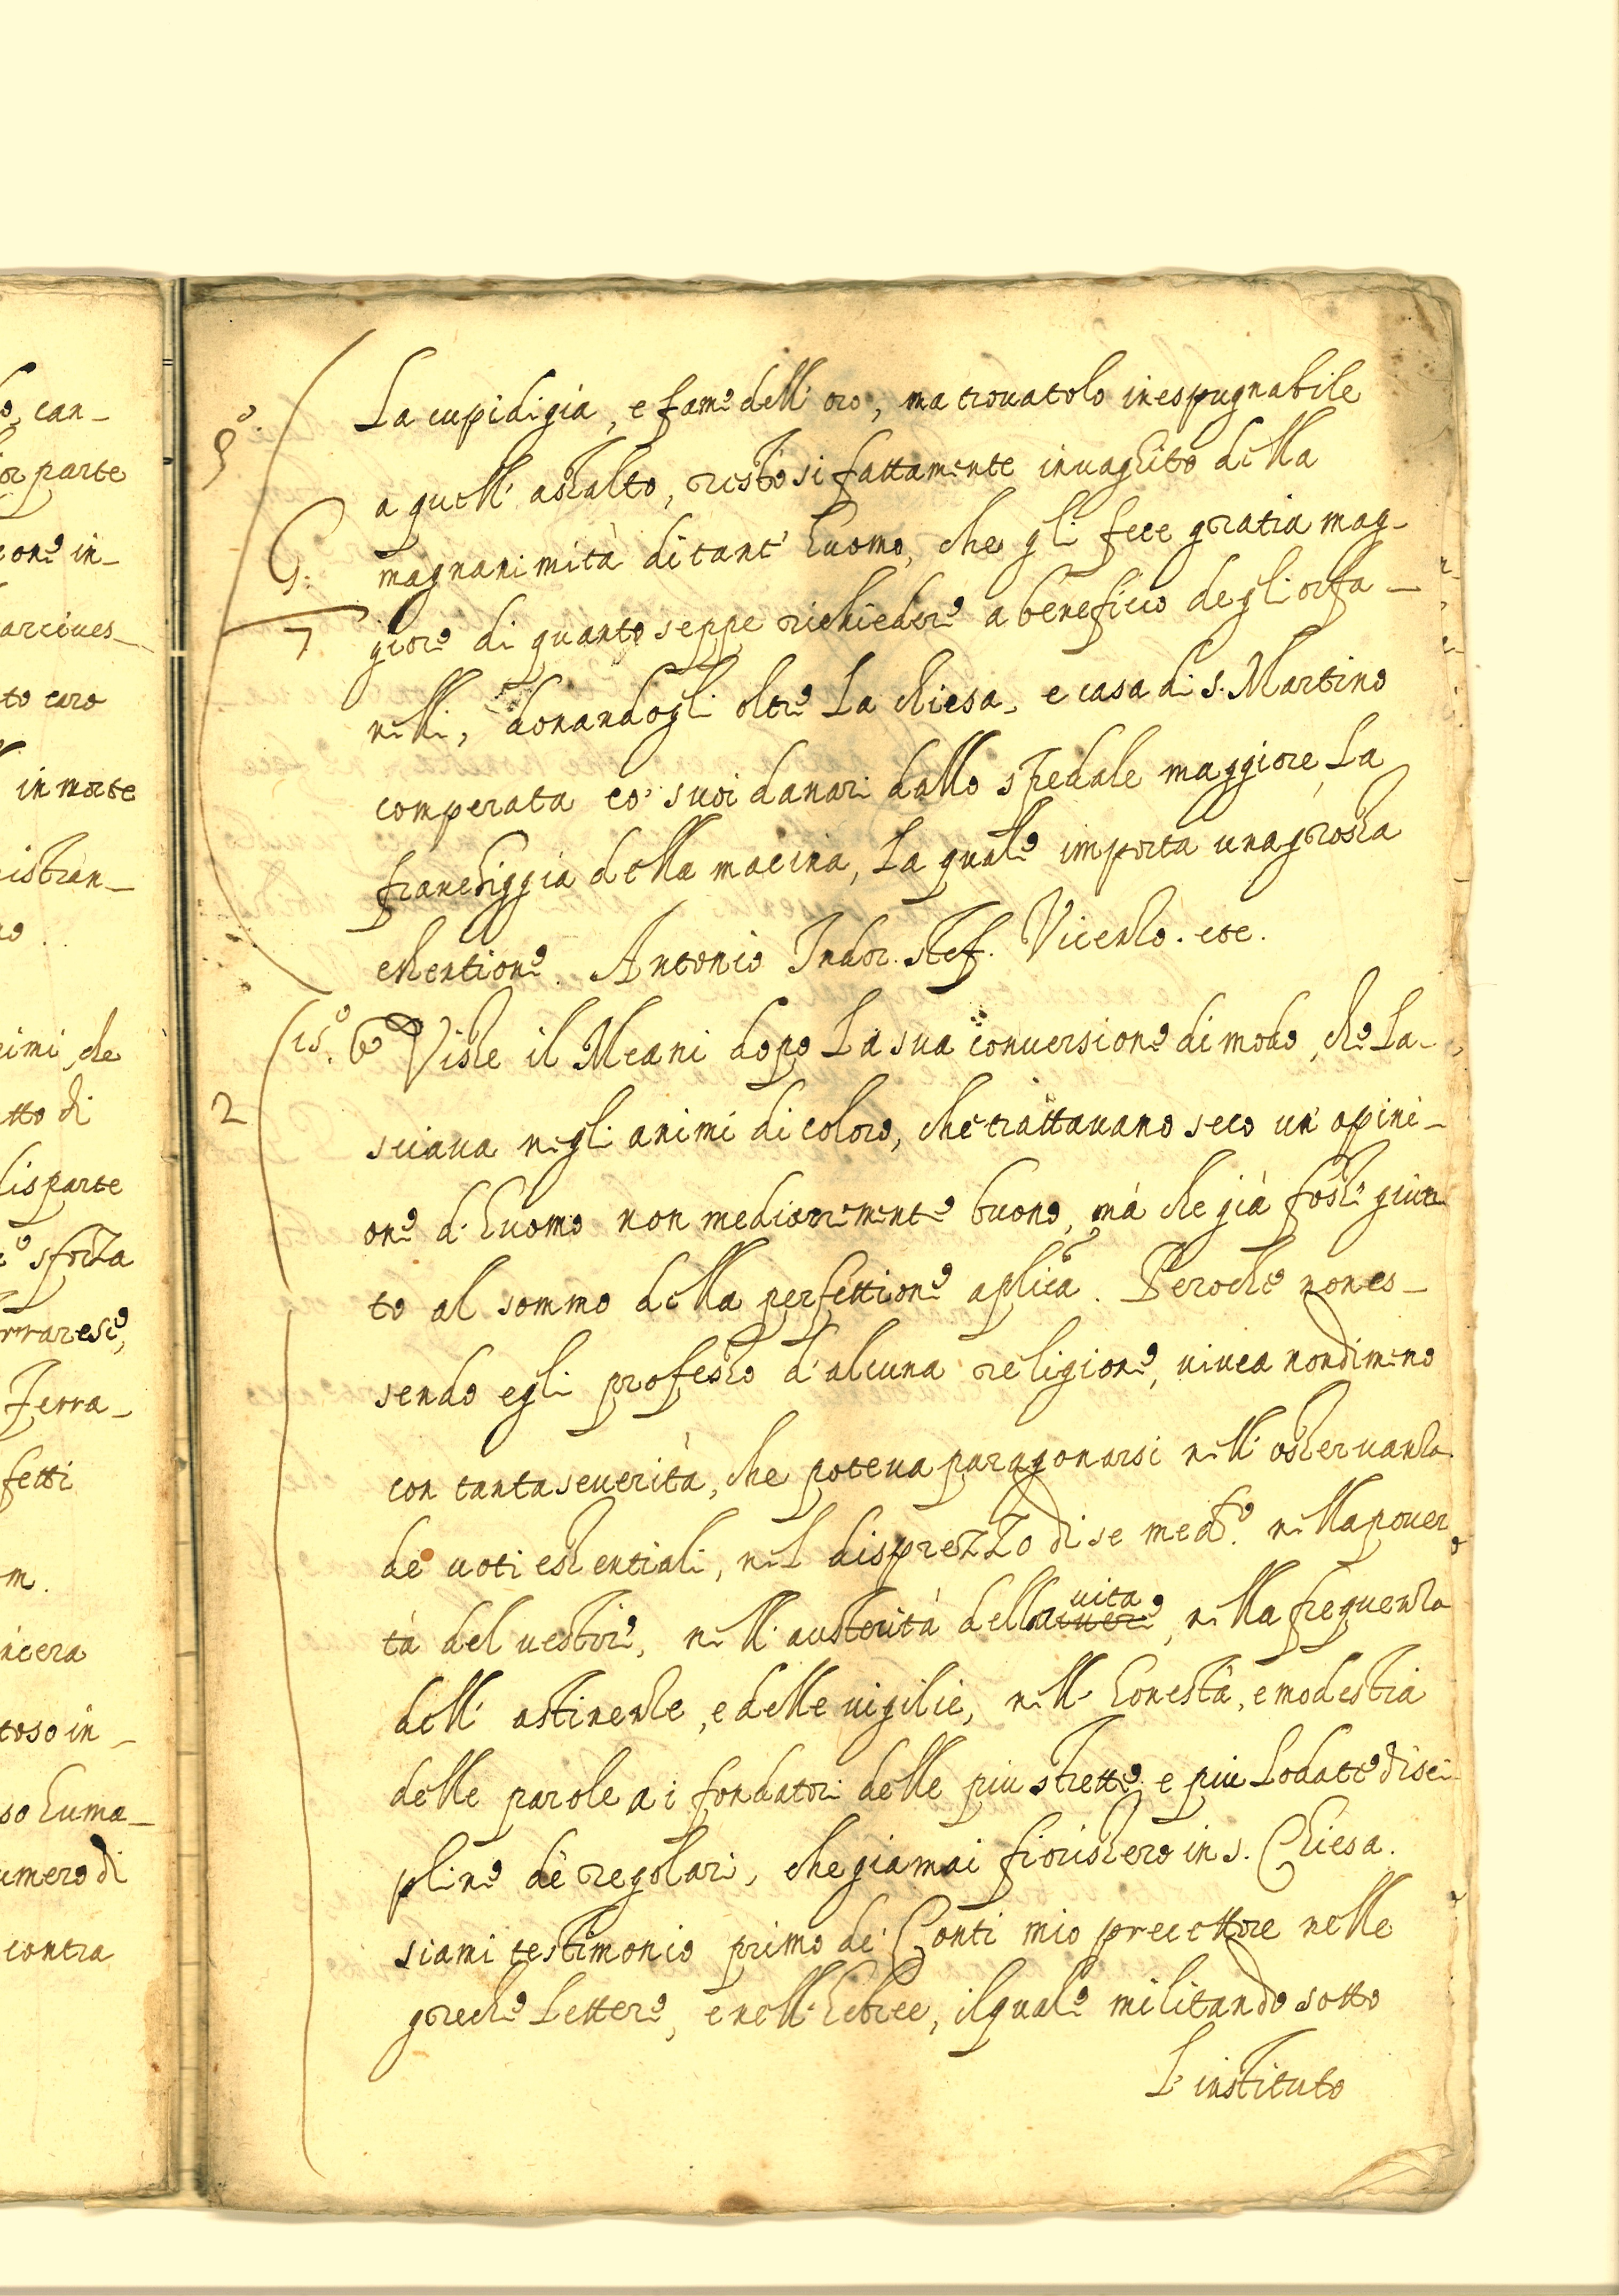 o, can-
or parte
one in-
arcives-
to caro
in morte
istran-
no.
imi, che
tto di
disparte
sforza
rraresi,
Ferra-
fetti
m.
ncera
toso in-
so huma-
umero di
contra
La cupidigia, e fame dell'oro, ma trouatolo inespugnabile
a quell' assalto, restò si fattamente inuaghito della
magnanimità di tant' huomo, che gli fece gratia mag-
7 giore di quanto seppe richiedere a beneficio degli orfa-
nelli, donandogli oltre La chiesa, e casa di S. Martino
comperata co' suoi danari dallo spedale maggiore, La
franchiggia della macina, La quale importa una grossa
essentione. Antonio Indr. stef. Vicenzo. etc.
15.° Visse il Meani dopo La sua conuersione di modo, che La-
2 sciaua negli animi di coloro, che trattauano seco un' opini-
one d'huomo non mediocremente buono, mà che già fosse giun
to al sommo della perfettione aplica. Peroche non es-
sendo egli professo d'alcuna religione, uiuea nondimeno
con tanta seuerità, che poteua paragonarsi nell' osseruanza
de uoti essentiali, nel disprezzo di se med.° nella pouer
tà del uestire, nell' austerità della uita, nella frequenza
dell' astinenze, e delle uigilie, nell' honestà, e modestia
delle parole a i fondatori delle piu strette e piu Lodate disci
pline dè regolari, che giamai fiorissero in s. Chiesa.
siami testimonio primo de' Conti mio precettore nelle
greche Lettere, e nell' hebree, il quale militando sotto
L' instituto